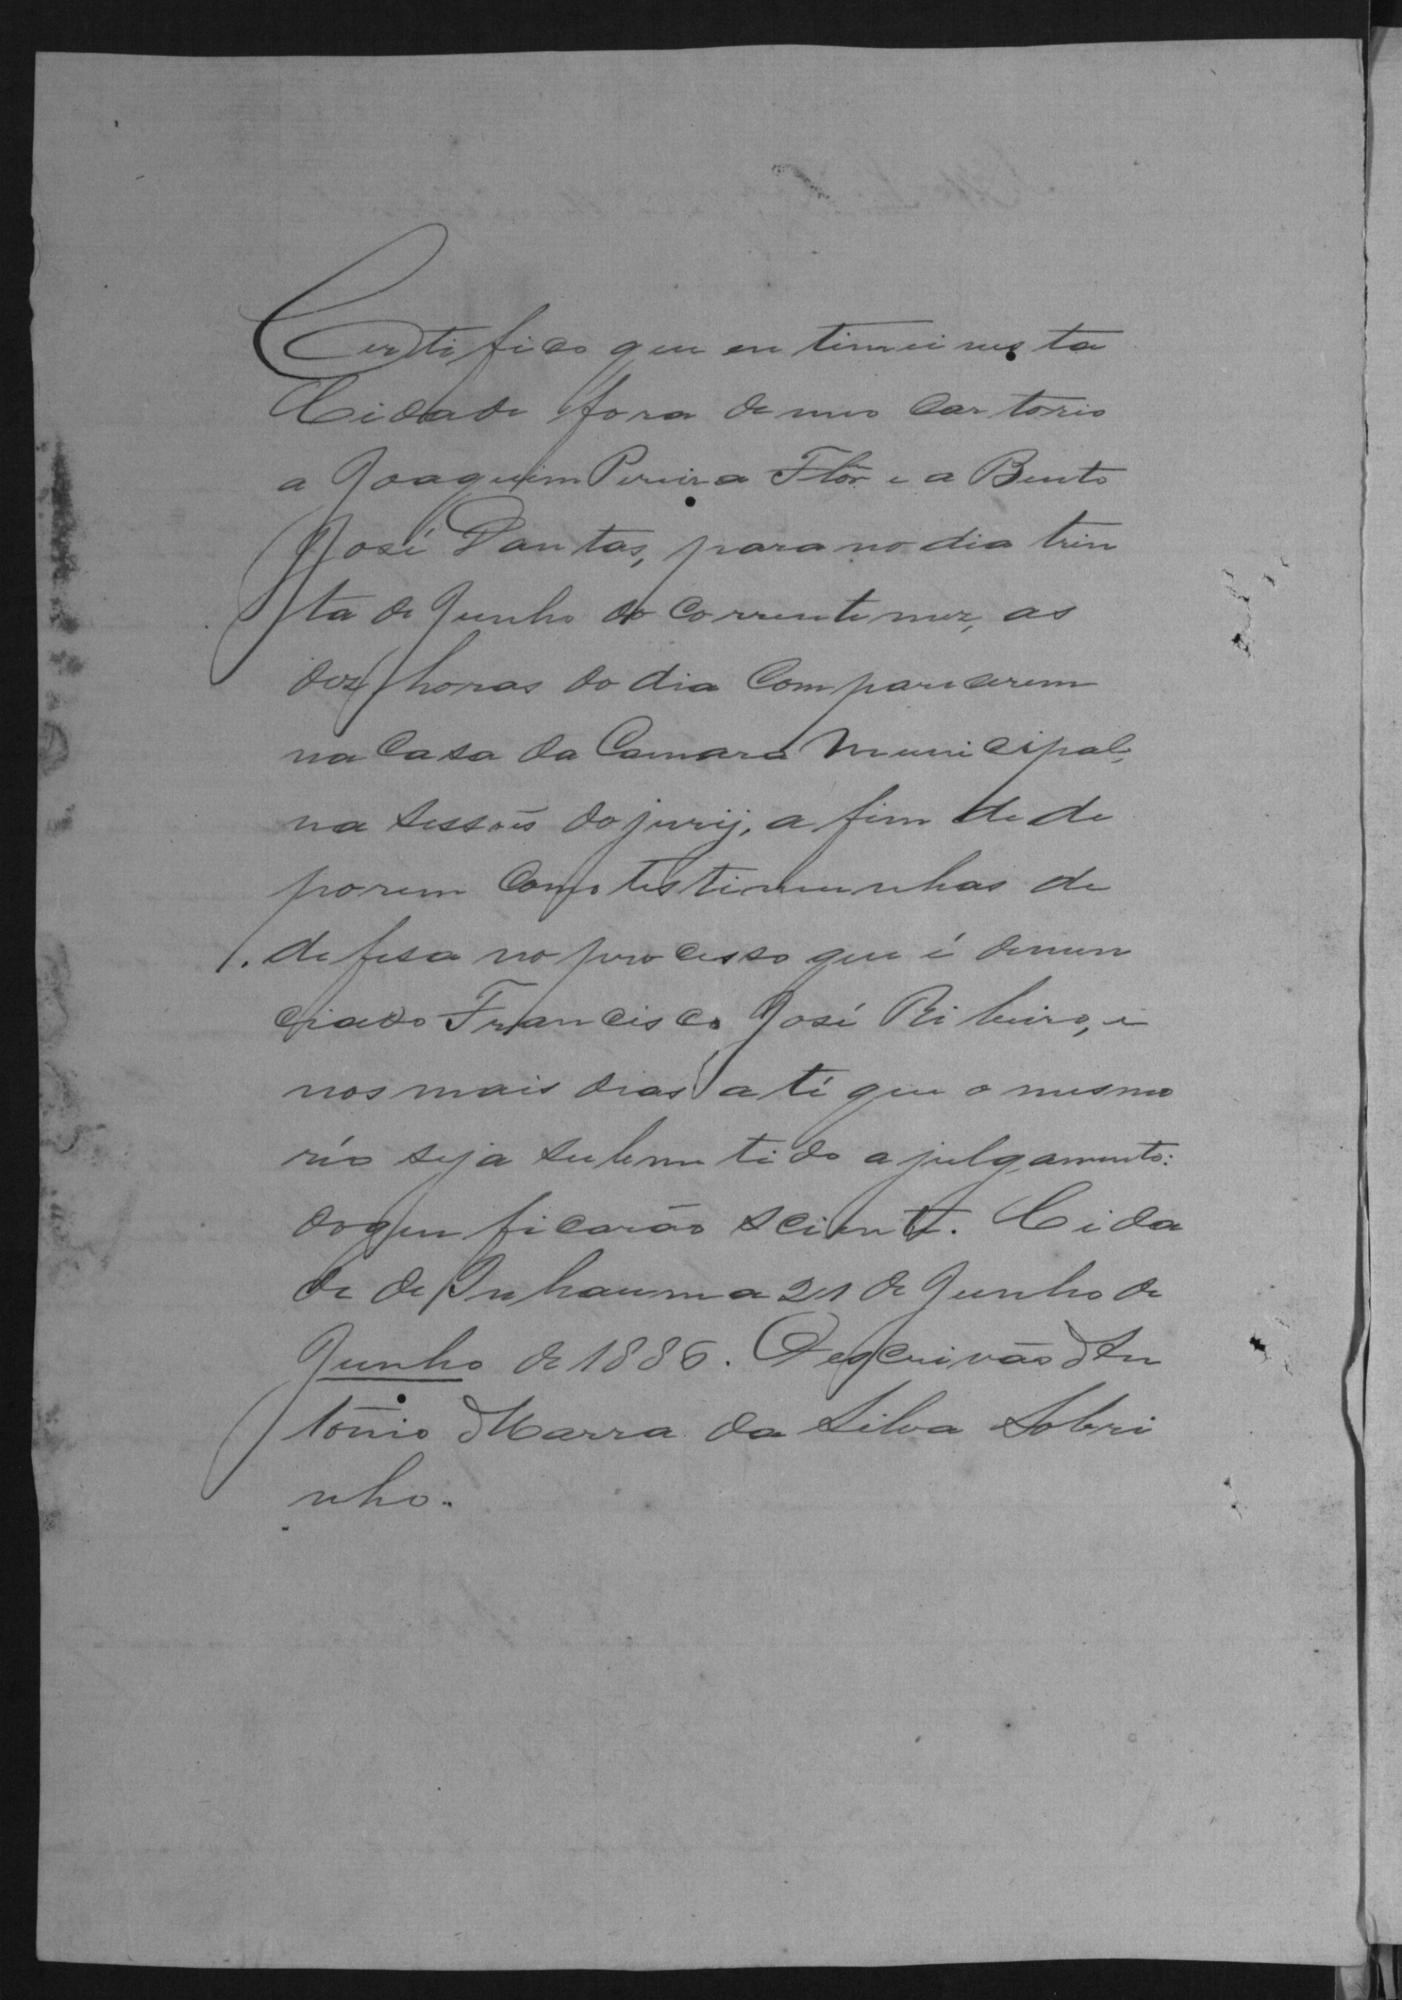 Certifico que entimei nesta
Cidade fora de meu Cartorio
a Joaquim Pereira Flôr e a Bento
José Dantas, para no dia trin
ta de Junho do corrente mez, as
dez horas do dia Comparecerem
na Casa da Camara Municipal,
na sessões do jurij, a fim de de
porem como testimunhas de
defesa no processo que é denun
ciado Francisco José Ribeiro, e
nos mais dias até que o mesmo
réo seja submetido a julgamento:
do que ficarão scient. Cida
de de Inhauma 21 de Junho de
Junho de 1886. O escrivão An
tonio Marra da Silva Sobri
nho.